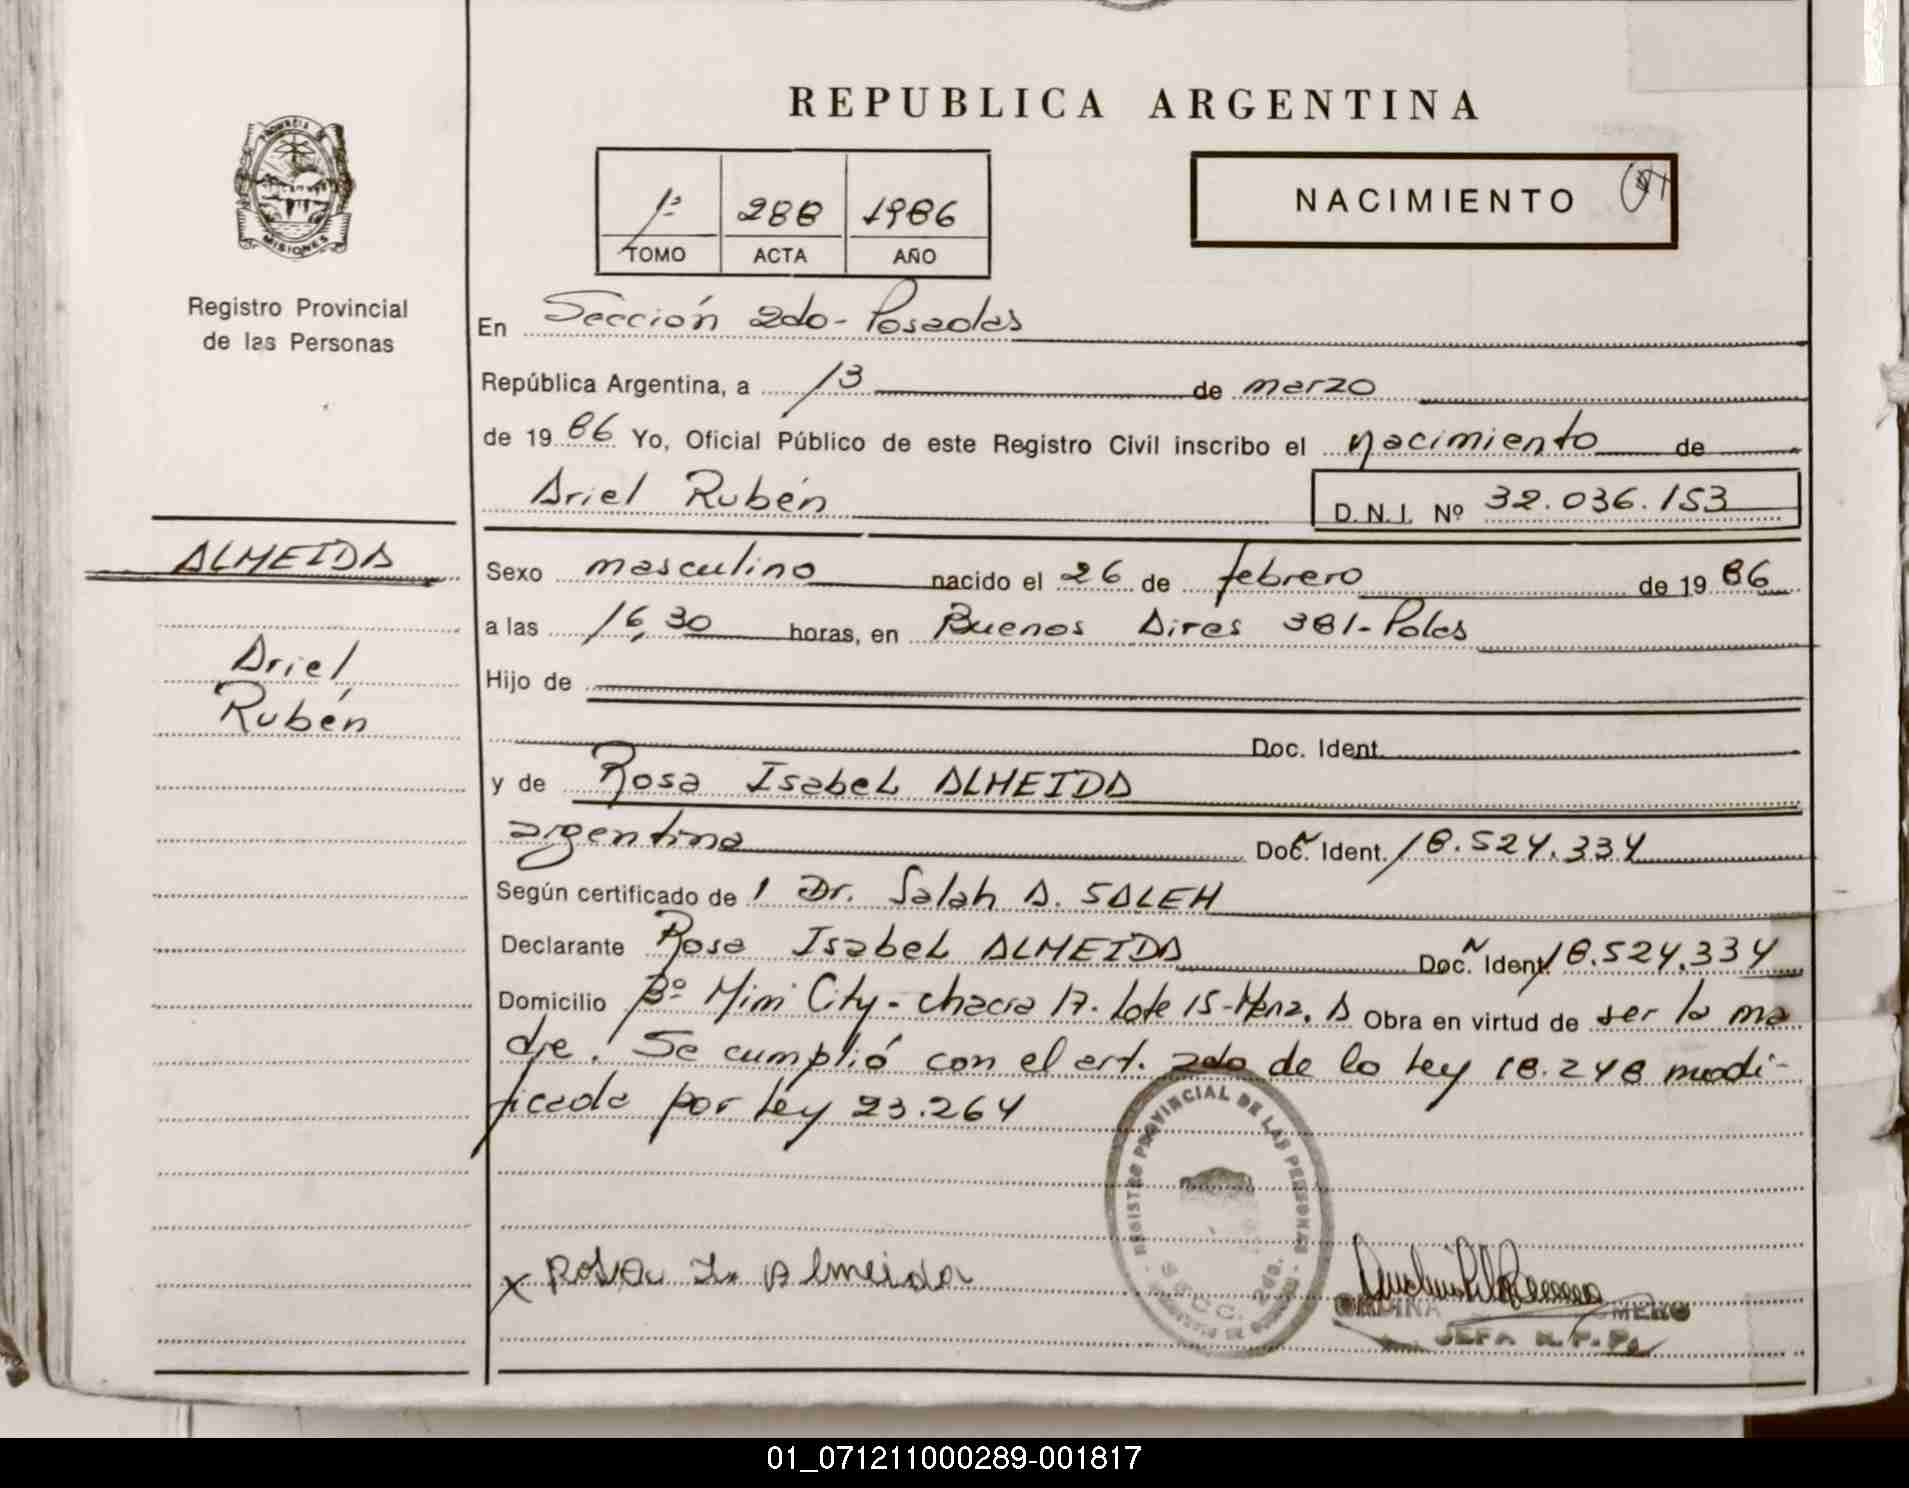 REPUBLICA ARGENTINA
PROVINCIA DE
MISIONES
Registro Provincial
de las Personas
1º 288 1986
TOMO ACTA AÑO
NACIMIENTO
En Sección 2da- Posadas
República Argentina, a 13 de marzo
de 1986 Yo, Oficial Público de este Registro Civil inscribo el nacimiento de
Ariel Rubén D.N.I. Nº 32.036.153
ALMEIDA
Ariel,
Rubén
Sexo masculino nacido el 26 de febrero de 1986
a las 16,30 horas, en Buenos Aires 381-Pdas
Hijo de
Doc. Ident.
y de Rosa Isabel ALMEIDA
argentina Doc. Ident. 18.524.334
Según certificado de 1 Dr. Salah A. SALEH
Declarante Rosa Isabel ALMEIDA Doc. Ident. 18.524.334
Domicilio Bº Mini City- chacra 17. Lote 15-Manz. A Obra en virtud de ser la ma
dre. Se cumplió con el art. 2do de la Ley 18.248 modi-
ficada por Ley 23.264
REGISTRO PROVINCIAL DE LAS PERSONAS
SECC. 2da.
x Rosa I. Almeida
JEFA R.P.P.
01_071211000289-001817